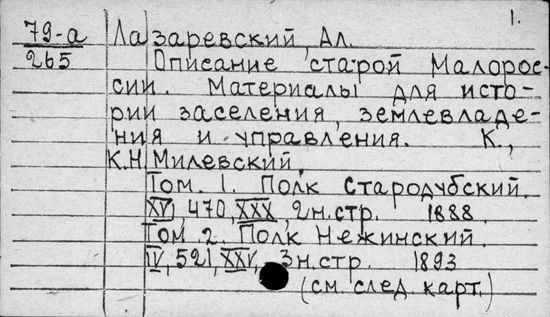 1.
79-а Лазаревский, Ал.
265 Описание старой Малорос-
сии. Материалы для исто-
рии заселения, землевладе-
ния и управления. К.,
К.Н. Милевский,
Том. 1. Полк Стародубский.
XV, 470, XXX, 2 н.стр. 1888.
Том. 2. Полк Нежинский.
IV, 521, XXV, 3 н.стр. 1893
(см. след карт.)